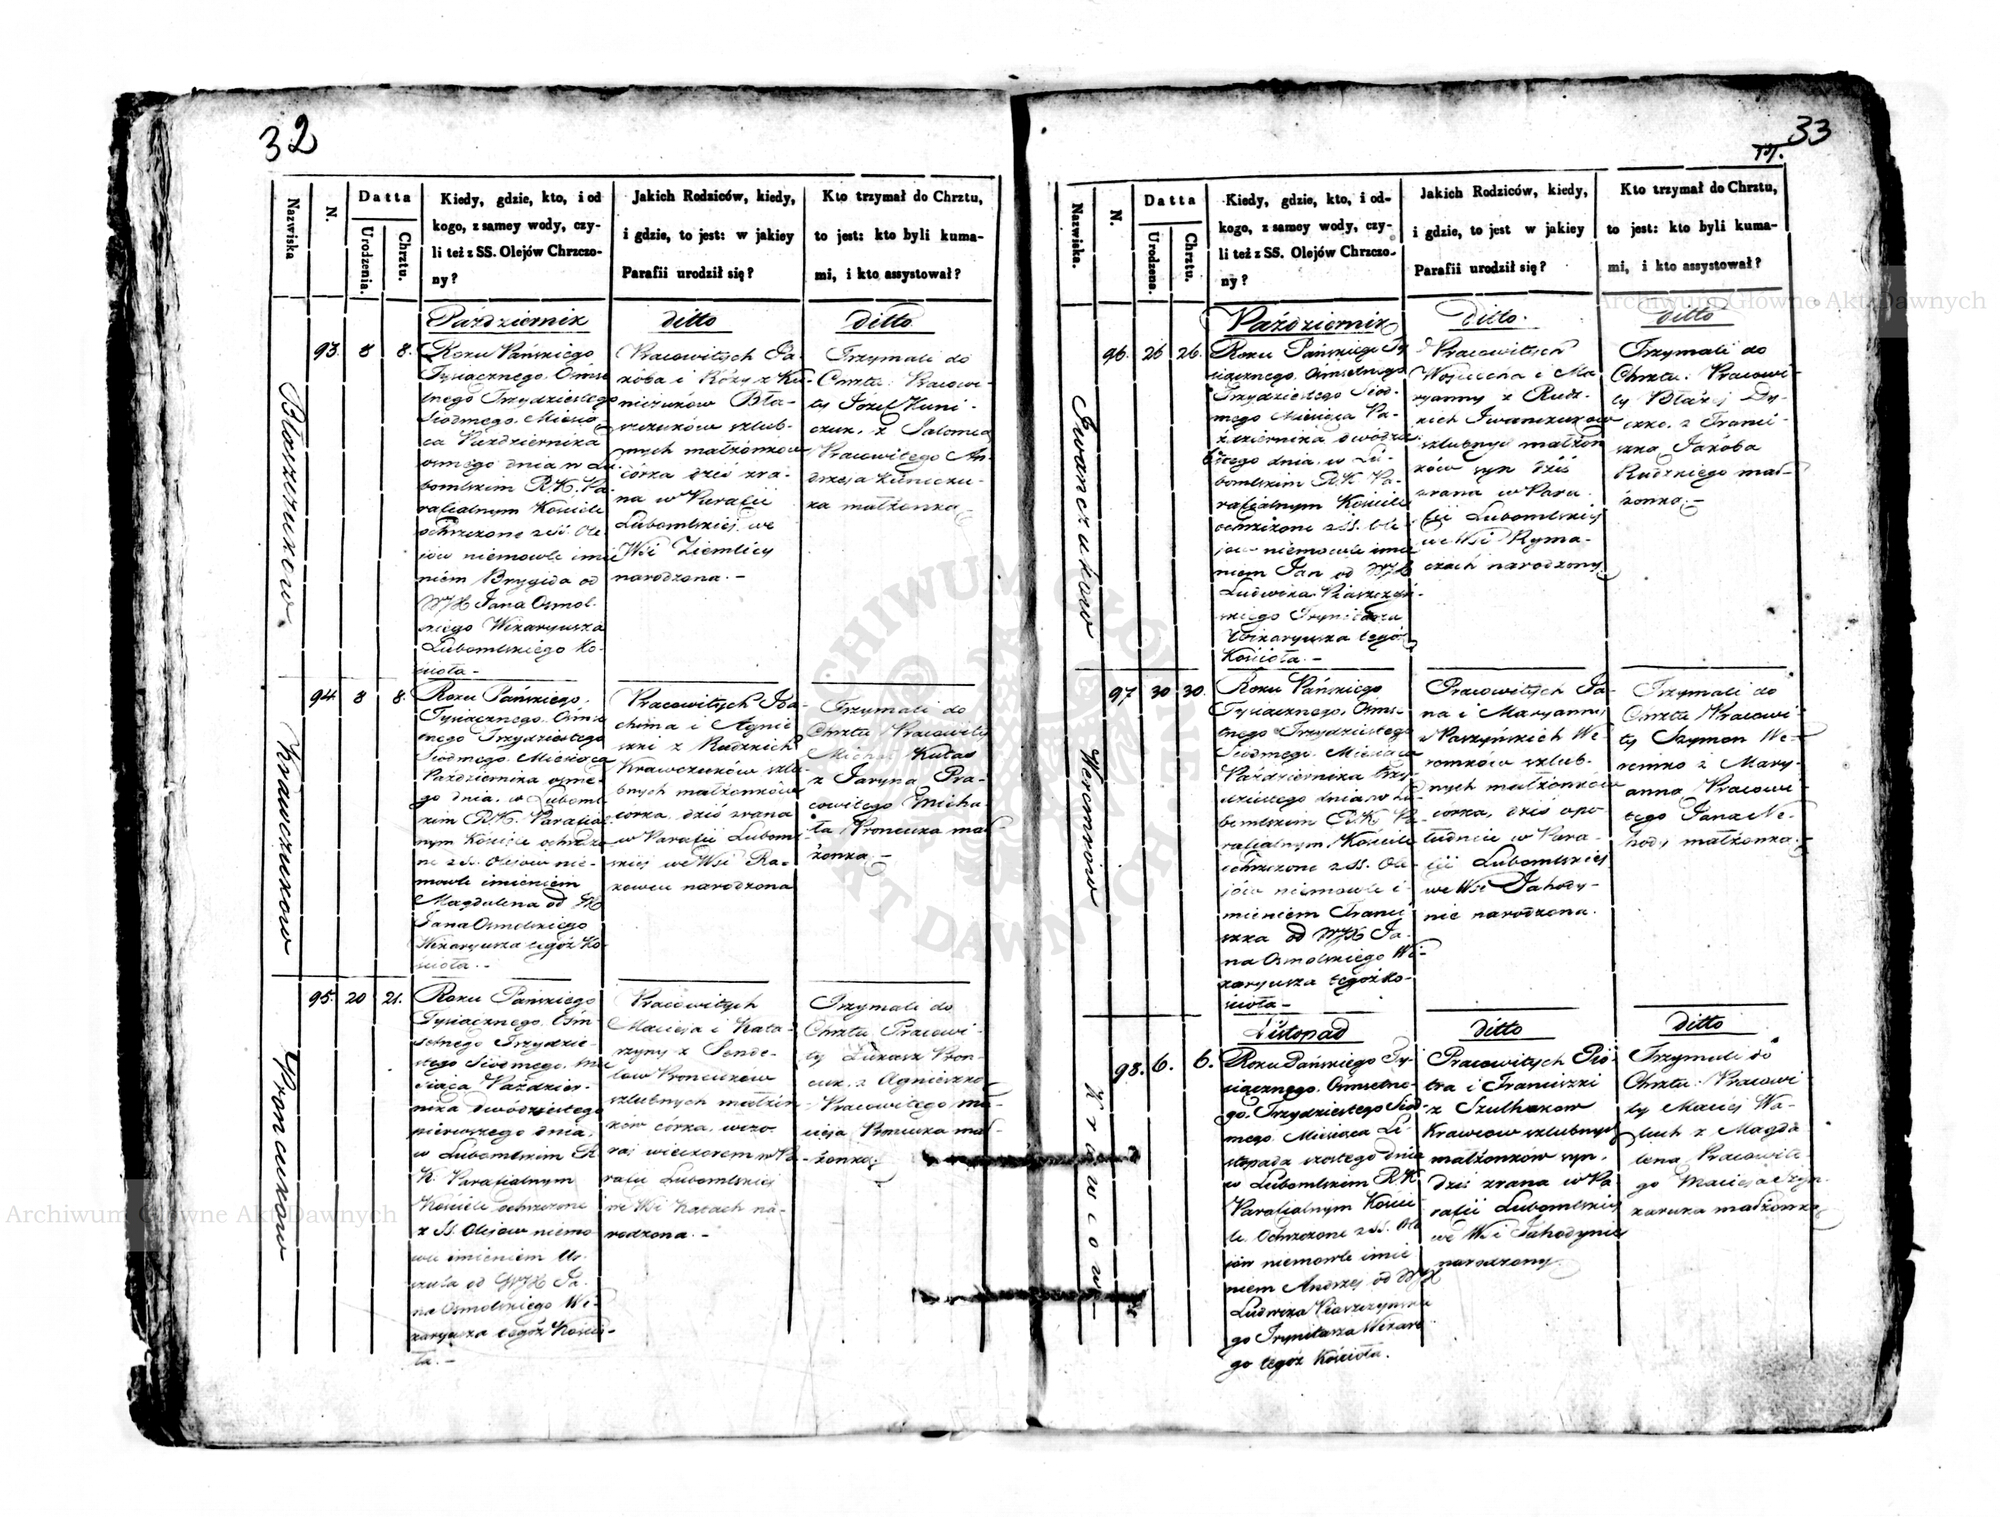 32
Nazwiska
N.
Datta
Urodzenia.
Chrztu.
Kiedy, gdzie, kto, i od
kogo, z samey wody, czy-
li też z SS. Olejów Chrzczo-
ny?
Jakich Rodziców, kiedy,
i gdzie, to jest: w jakiey
Parafii urodził się?
Kto trzymał do Chrztu,
to jest: kto byli kuma-
mi, i kto assystował?
Październik
ditto
ditto
Błaszczuków
93. 8 8.
Roku Pańskiego
Tysiącznego Ośmse-
tnego Trzydziestego
Siódmego Miesią-
ca Października
osmego dnia w Lu-
bomlskim R.K. Pa-
rafialnym Kościele
ochrzczone z SS. Ole-
jów niemowle imie
niem Brygida od
WJX Jana Osmol-
skiego Wikaryusza
Lubomlskiego Ko-
ścioła.-
Pracowitych Ja-
kóba i Róży z Ku-
niczuków Bła-
szczuków szlub-
nych małżonków
córka dziś zra-
na w Parafii
Lubomlskiej we
Wsi Ziemlicy
narodzona.-
Trzymali do
Chrztu: Pracowi-
ty Józef Kuni-
czuk, z Salomeą
Pracowitego An-
drzeja Kuniczu-
ka małżonką.-
Krawczuków
94 8 8.
Roku Pańskiego,
Tysiącznego, Osmse
tnego Trzydziestego
Siodmego. Miesiąca
Października osme-
go dnia, w Luboml-
skim R.K. Parafial-
nym Kościele ochrzczo
ne z SS. Olejow nie-
mowle imieniem
Magdalena od WJX
Jana Osmolskiego
Wikaryusza tegoż Ko-
ścioła.-
Pracowitych Joa-
chima i Agnie
szki z Rudzkich
Krawczuków szlu-
bnych małżonków
córka, dziś zrana
w Parafii Luboml-
skiej we Wsi Ra-
kowcu narodzona
Trzymali do
Chrztu Pracowity
Michał Kutas
z Jaryną Pra-
cowitego Micha
ła Proncuka mał-
żonką.-
Proncuków
95. 20 21.
Roku Pańskiego
Tysiącznego Ośm-
setnego Trzydzie-
stego Siódmego, Mie
siąca Paździer-
nika dwódziestego
pierwszego dnia,
w Lubomlskim R.
K. Parafialnym
Kościele ochrzczone
z SS. Olejow niemo
wle imieniem Ur-
szula od WJX Ja-
na Osmolskiego Wi-
karyusza tegóż Kościo-
ła.-
Pracowitych
Macieja i Kata-
rzyny z Sende-
low Proncuków
szlubnych małżon
kow córka, wczo
raj wieczorem w Pa
rafii Lubomlskiej
we Wsi Kotach na-
rodzona.-
Trzymali do
Chrztu Pracowi-
ty Łukasz Pron-
cuk, z Agnieszką
Pracowitego Ma-
cieja Proncuka mał-
żonką.
33
Nazwiska.
N.
Datta
Urodzena.
Chrztu.
Kiedy, gdzie, kto, i od-
kogo, z samey wody, czy-
li też z SS. Olejów Chrzczo-
ny?
Jakich Rodziców, kiedy,
i gdzie, to jest w jakiey
Parafii urodził się?
Kto trzymał do Chrztu,
to jest: kto byli kuma-
mi, i kto assystował?
Październik
Ditto.
Ditto
Iwanczuków
96. 26 26.
Roku Pańskiego Ty
siącznego, Osmsetnego
Trzydziestego Siod-
mego Miesiąca Pa-
ździernika dwódzie-
stego dnia, w Lu-
bomlskim R.K. Pa-
rafialnym Kościele
ochrzczone z SS. Ole-
jow niemowle imie
niem Jan od WJX
Ludwika
skiego Trynitarza
Wikaryusza tegoż
Kościoła.-
Pracowitych
Wojciecha i Ma
ryanny z Rudz-
kich Iwanczuków
szlubnych małżon
ków syn dziś
zrana w Para
fii Lubomlskiej
we Wsi Ryma-
czach narodzony
Trzymali do
Chrztu: Pracowi-
ty Błażej
z Franci-
szką Jakóba
Rudzkiego mał-
żonką.-
Weremków
97 30 30.
Roku Pańskiego
Tysiącznego, Osmse-
tnego Trzydziestego
Siodmego. Miesiąca
Października trzy-
dziestego dnia w Lu-
bomlskim R.K. Pa-
rafialnym Kościele
ochrzczone z SS. Ole-
jów niemowle i-
mieniem Franci
szka od WJX Ja-
na Osmolskiego Wi-
karyusza tegóż Ko-
ścioła-
Pracowitych Ja-
na i Maryanny
z Paszyńskich We-
remków szlub-
nych małżonków
córka, dziś opo-
łudniu w Para-
fii Lubomlskiej
we Wsi Jahody-
nie narodzona.
Trzymali do
Chrztu Pracowi-
ty Szymon We-
remko z Mary-
anną Pracowi-
tego Jana
małżonką.-
Listopad
ditto
ditto
Krawcow
98. 6. 6.
Roku Pańskiego Ty-
siącznego, Osmsetne-
go, Trzydziestego Siod-
mego Miesiąca Li-
stopada szóstego dnia
w Lubomlskim R.K
Parafialnym Kości
le Ochrzczone z SS. Ole
jów niemowle imie
niem Andrzej od WJX
Ludwika
go Trynitarza Wikare
go tegóż Kościoła.
Pracowitych Pió
tra i Franciszki
z Szulhakow
Krawcow szlubnych
małżonków syn,
dziś zrana w Pa
rafii Lubomlskiej
we Wsi Jahodynie
narodzony.
Trzymali do
Chrztu: Pracowi
ty Maciej Wa-
luch z Magda
leną Pracowite-
go Macieja
małżonką
Archiwum Główne Akt Dawnych
Archiwum Główne Akt Dawnych
ARCHIWUM GŁÓWNE AKT DAWNYCH